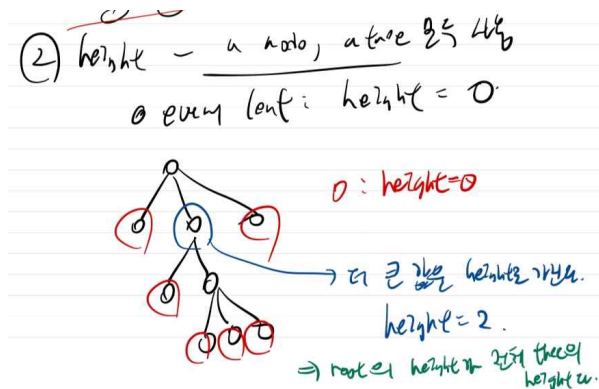 ② height - a node, a tree 모두 사용
every leaf : height = 0
O : height=0
→ 더 큰 값을 height로 가진다.
height = 2.
⇒ root의 height가 전체 tree의
height다.